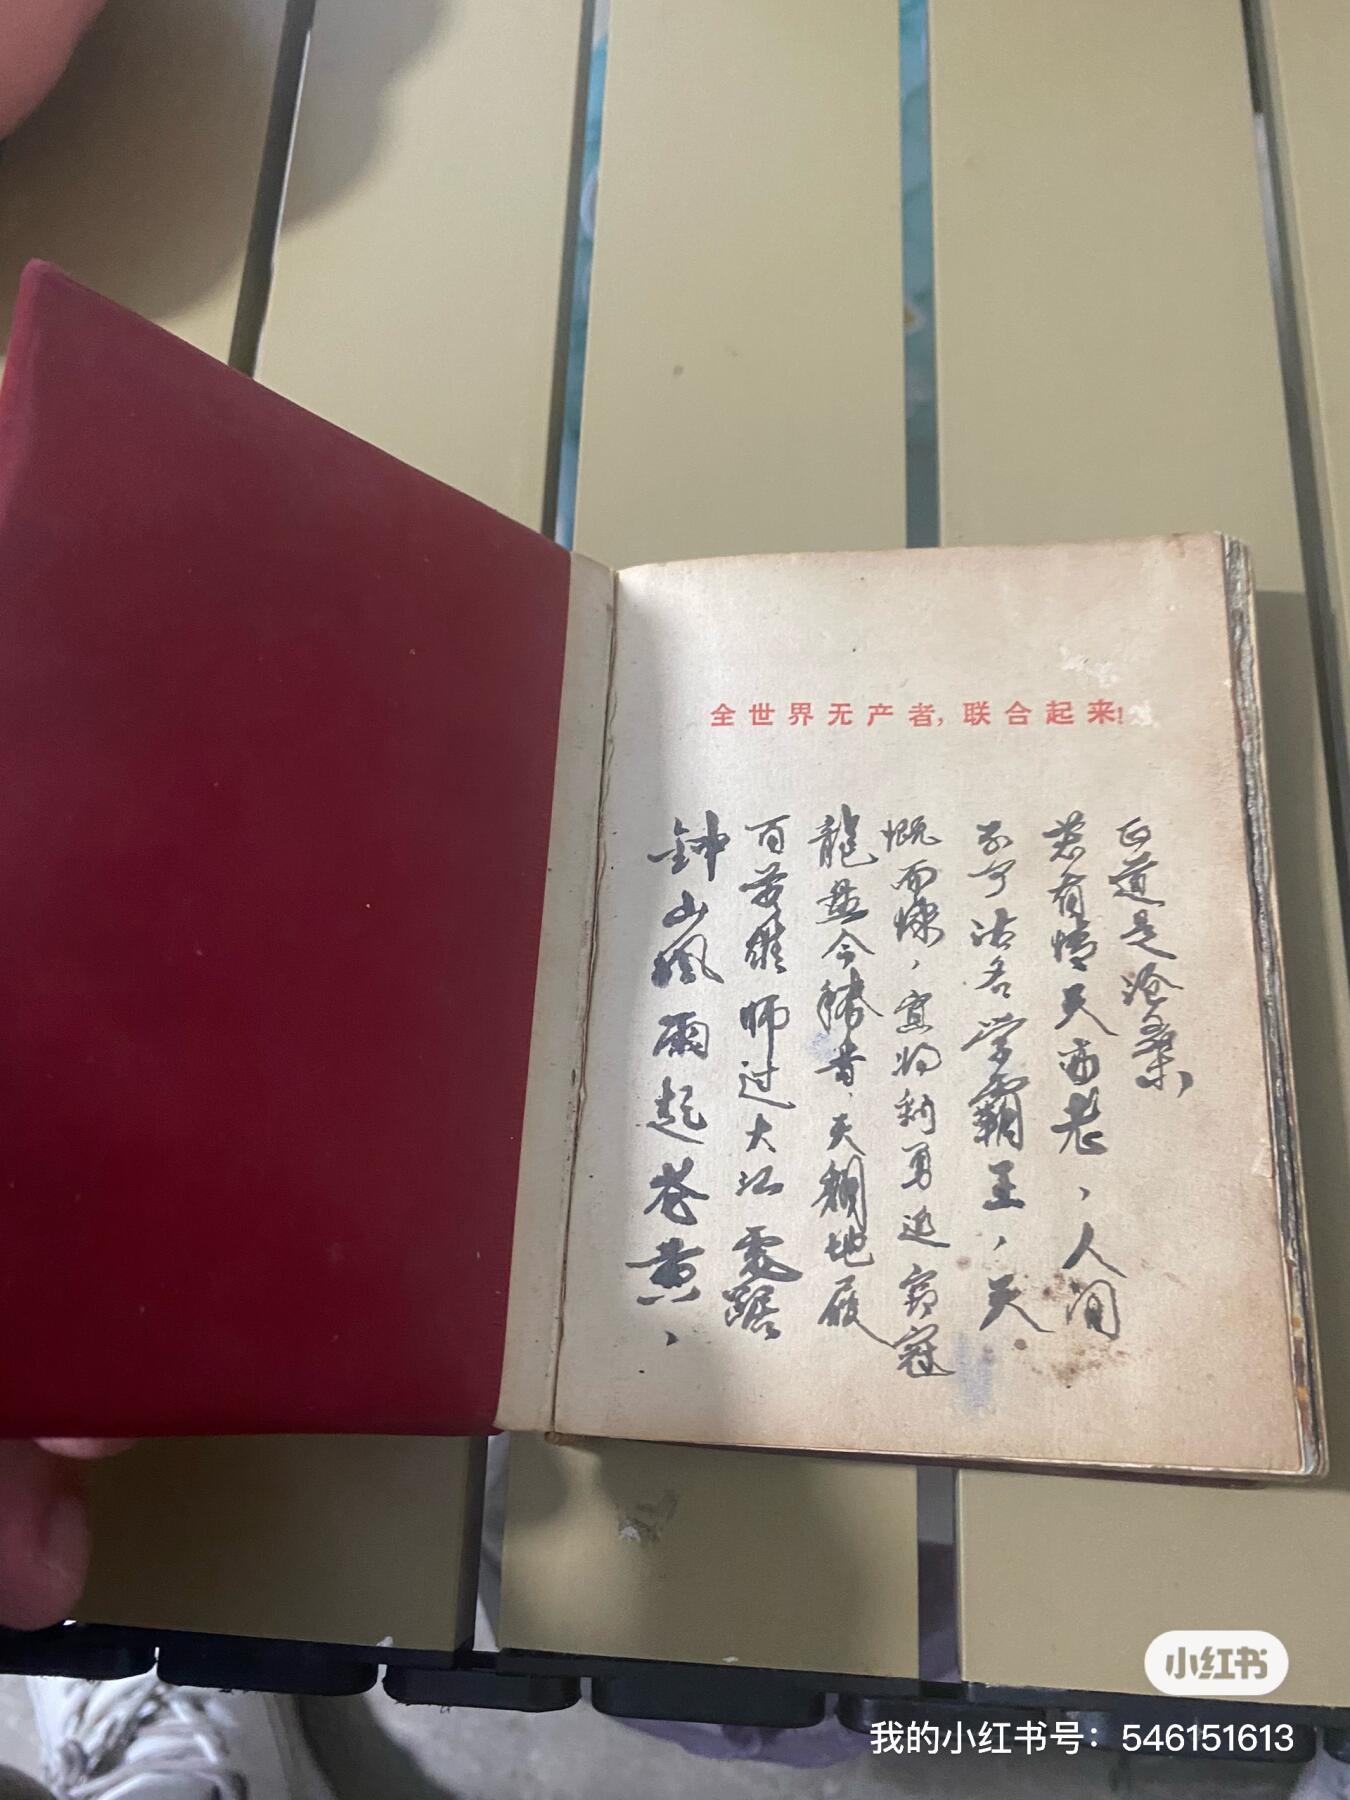 全世界无产者，联合起来！
钟山風雨起苍黄，
百萬雄师过大江虎踞
龍盘今勝昔、天翻地覆
慨而慷，宜将剩勇追窮寇
不可沽名学霸王，天
若有情天亦老，人间
正道是沧桑
小红书
我的小红书号：546151613